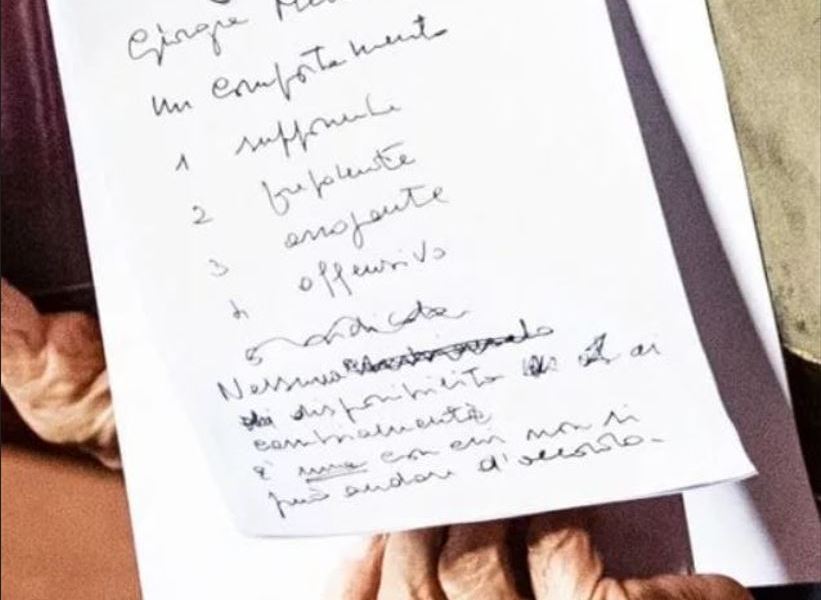 Giorgia
Un comportamento
1 supponente
2 prepotente
3 arrogante
4 offensivo
5
Nessuna
disponibilità ai
cambiamenti
è una con cui non si
può andare d'accordo.